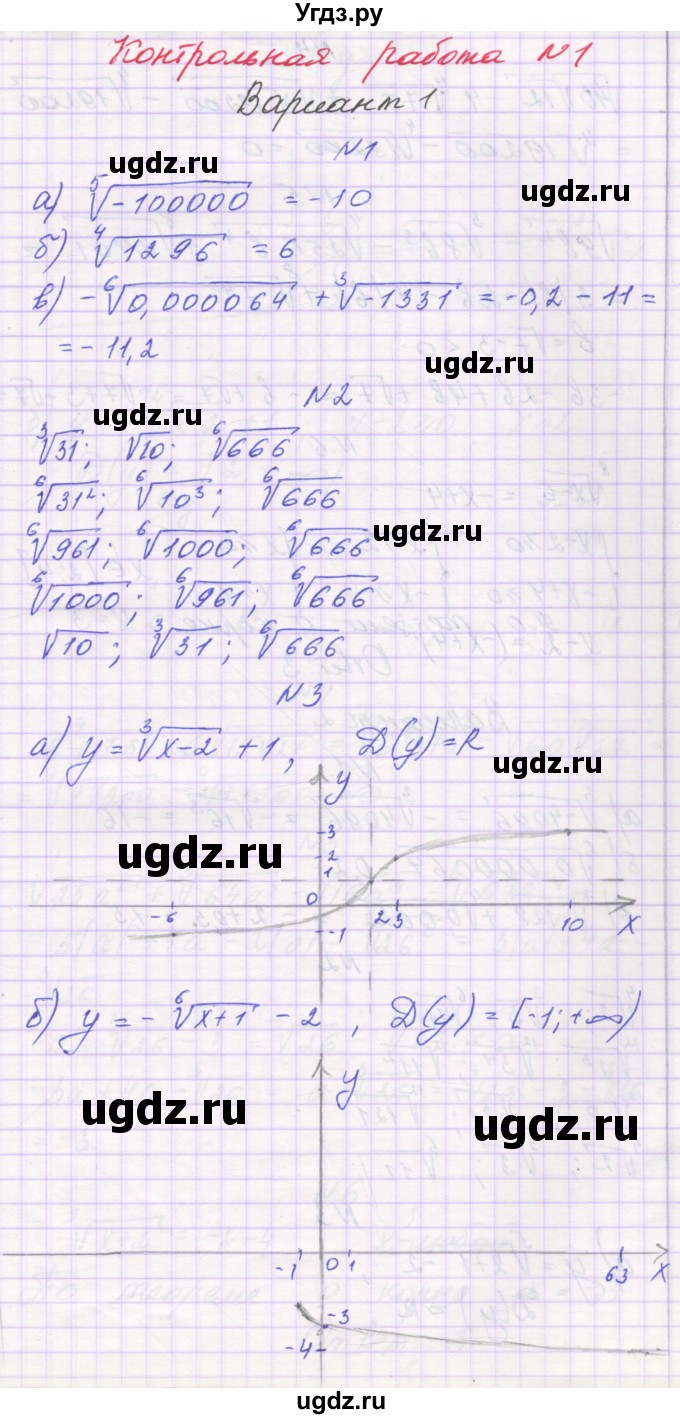 Угдз.ру
Контрольная работа №1
Вариант 1
№1
ugdz.ru ugdz.ru
а) ⁵√-100000 = -10
б) ⁴√1296 = 6
в) -⁶√0,000064 + ³√-1331 = -0,2 - 11 =
= -11,2
ugdz.ru
№2
ugdz.ru
³√31; √10; ⁶√666
⁶√31²; ⁶√10³; ⁶√666
⁶√961; ⁶√1000; ⁶√666
ugdz.ru
⁶√1000; ⁶√961; ⁶√666
√10; ³√31; ⁶√666
№3
а) y = ³√x-2 + 1, D(y) = R
ugdz.ru
y
3
2
1
ugdz.ru
0
-6 2 3 10 x
-1
б) y = -⁶√x+1 - 2, D(y) = [-1; +∞)
y
ugdz.ru
ugdz.ru
-1 0 1 63 x
-3
-4
ugdz.ru